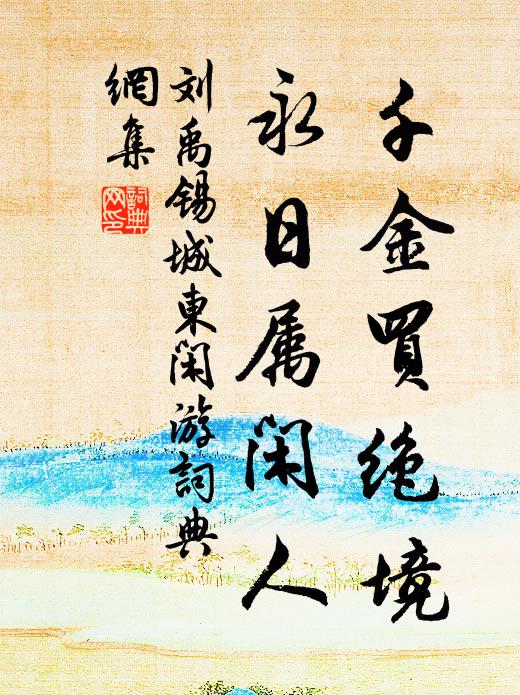 千金買绝境
永日属闲人
刘禹锡城東闲游詞典
網集
詞典
网印